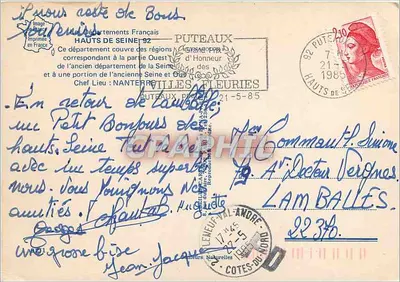 Il nous reste de Bons
Souvenirs
Départements Français
HAUTS DE SEINE 92
Ce département couvre des régions
correspondant à la partie Ouest
de l'ancien département de la Seine
et à une portion de l'ancienne Seine et Oise
Chef Lieu : NANTERRE
PUTEAUX
GRAND PRIX
d'Honneur
des
VILLES FLEURIES
21-5-85
92 PUTEAUX
21-5
1985
HAUTS DE SEINE
2,10
En retour de
un Petit Bonjour des
hauts. Seine
avec un temps superbe
nous. Vous
amitiés.
Georges Chantal Huguette
une grosse bise
Jean Jacques
Me Commault Simone
9 Av Docteur Vergnes
LAMBALLES
22370.
PLENEUF-VAL-ANDRE
17H45
22-5
1985
COTES-DU-NORD